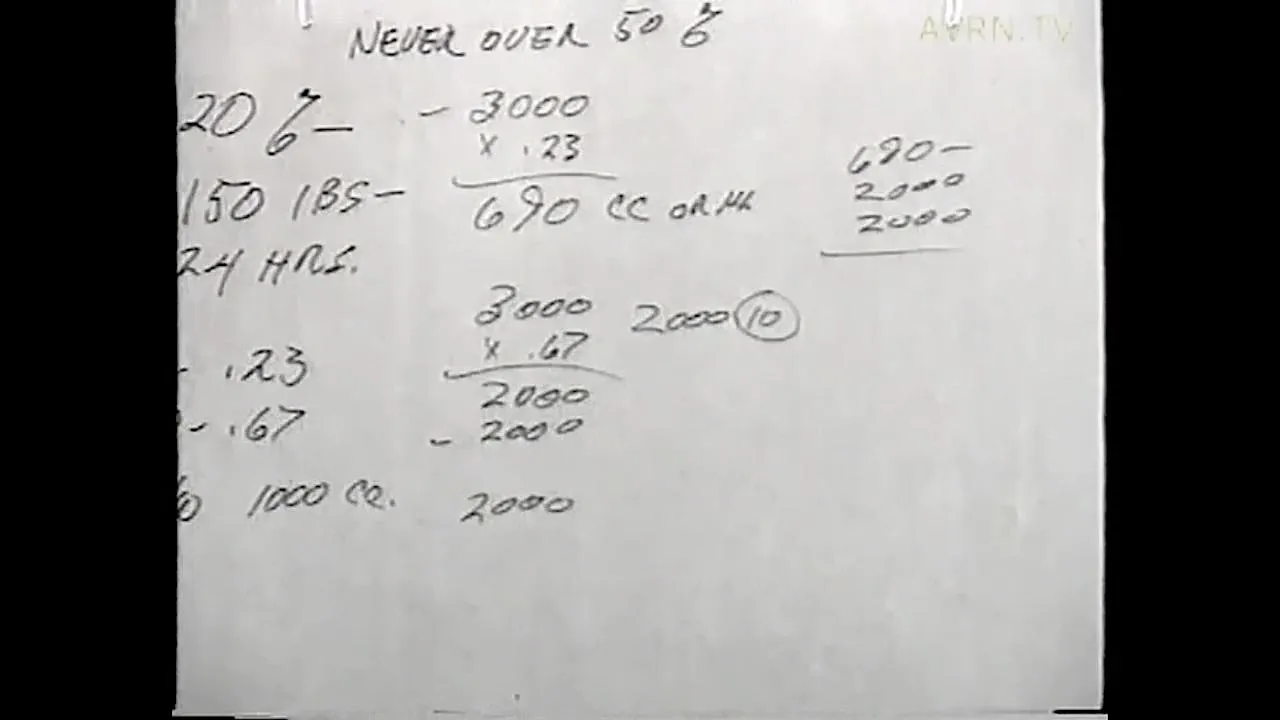 AVRN.TV
NEVER OVER 50 %
20 % —
150 lBS —
24 HRS.
- .23
- .67
1000 CC.
- 3000
x .23
690 CC OR ML
3000
x .67
2000
- 2000
2000
2000 10
690 —
2000
2000